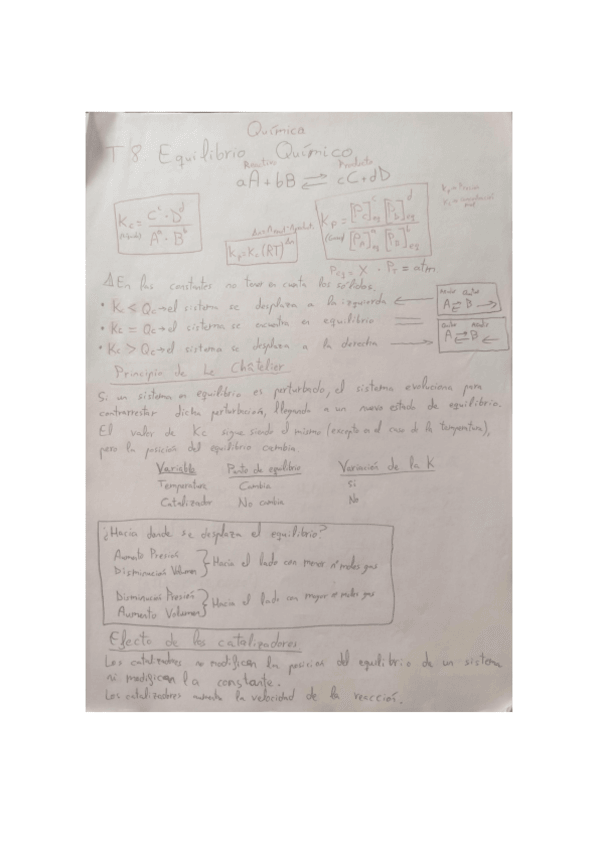 Química
T8 Equilibrio Químico
Reactivo Producto
aA + bB ⇌ cC + dD
Kc = C^c · D^d / A^a · B^b
Kp = Kc (RT)^Δn
Kp = [Pc]^c eq [PD]^d eq / [PA]^a eq [PB]^b eq
Peq = X · PT = atm
⚠En las constantes no tener en cuenta los sólidos.
• Kc < Qc → el sistema se desplaza a la izquierda ←
• Kc = Qc → el sistema se encuentra en equilibrio =
• Kc > Qc → el sistema se desplaza a la derecha →
A ⇌ B →
A ⇌ B ←
Principio de Le Châtelier
Si un sistema en equilibrio es perturbado, el sistema evoluciona para
contrarrestar dicha perturbación, llegando a un nuevo estado de equilibrio.
El valor de Kc sigue siendo el mismo (excepto en el caso de la temperatura),
pero la posición del equilibrio cambia.
Variable Punto de equilibrio Variación de la K
Temperatura Cambia Si
Catalizador No cambia No
¿Hacia donde se desplaza el equilibrio?
Aumento Presión
Disminución Volumen } Hacia el lado con menor nº moles gas
Disminución Presión
Aumento Volumen } Hacia el lado con mayor nº moles gas
Efecto de los catalizadores
Los catalizadores no modifican la posición del equilibrio de un sistema
ni modifican la constante.
Los catalizadores aumenta la velocidad de la reacción.